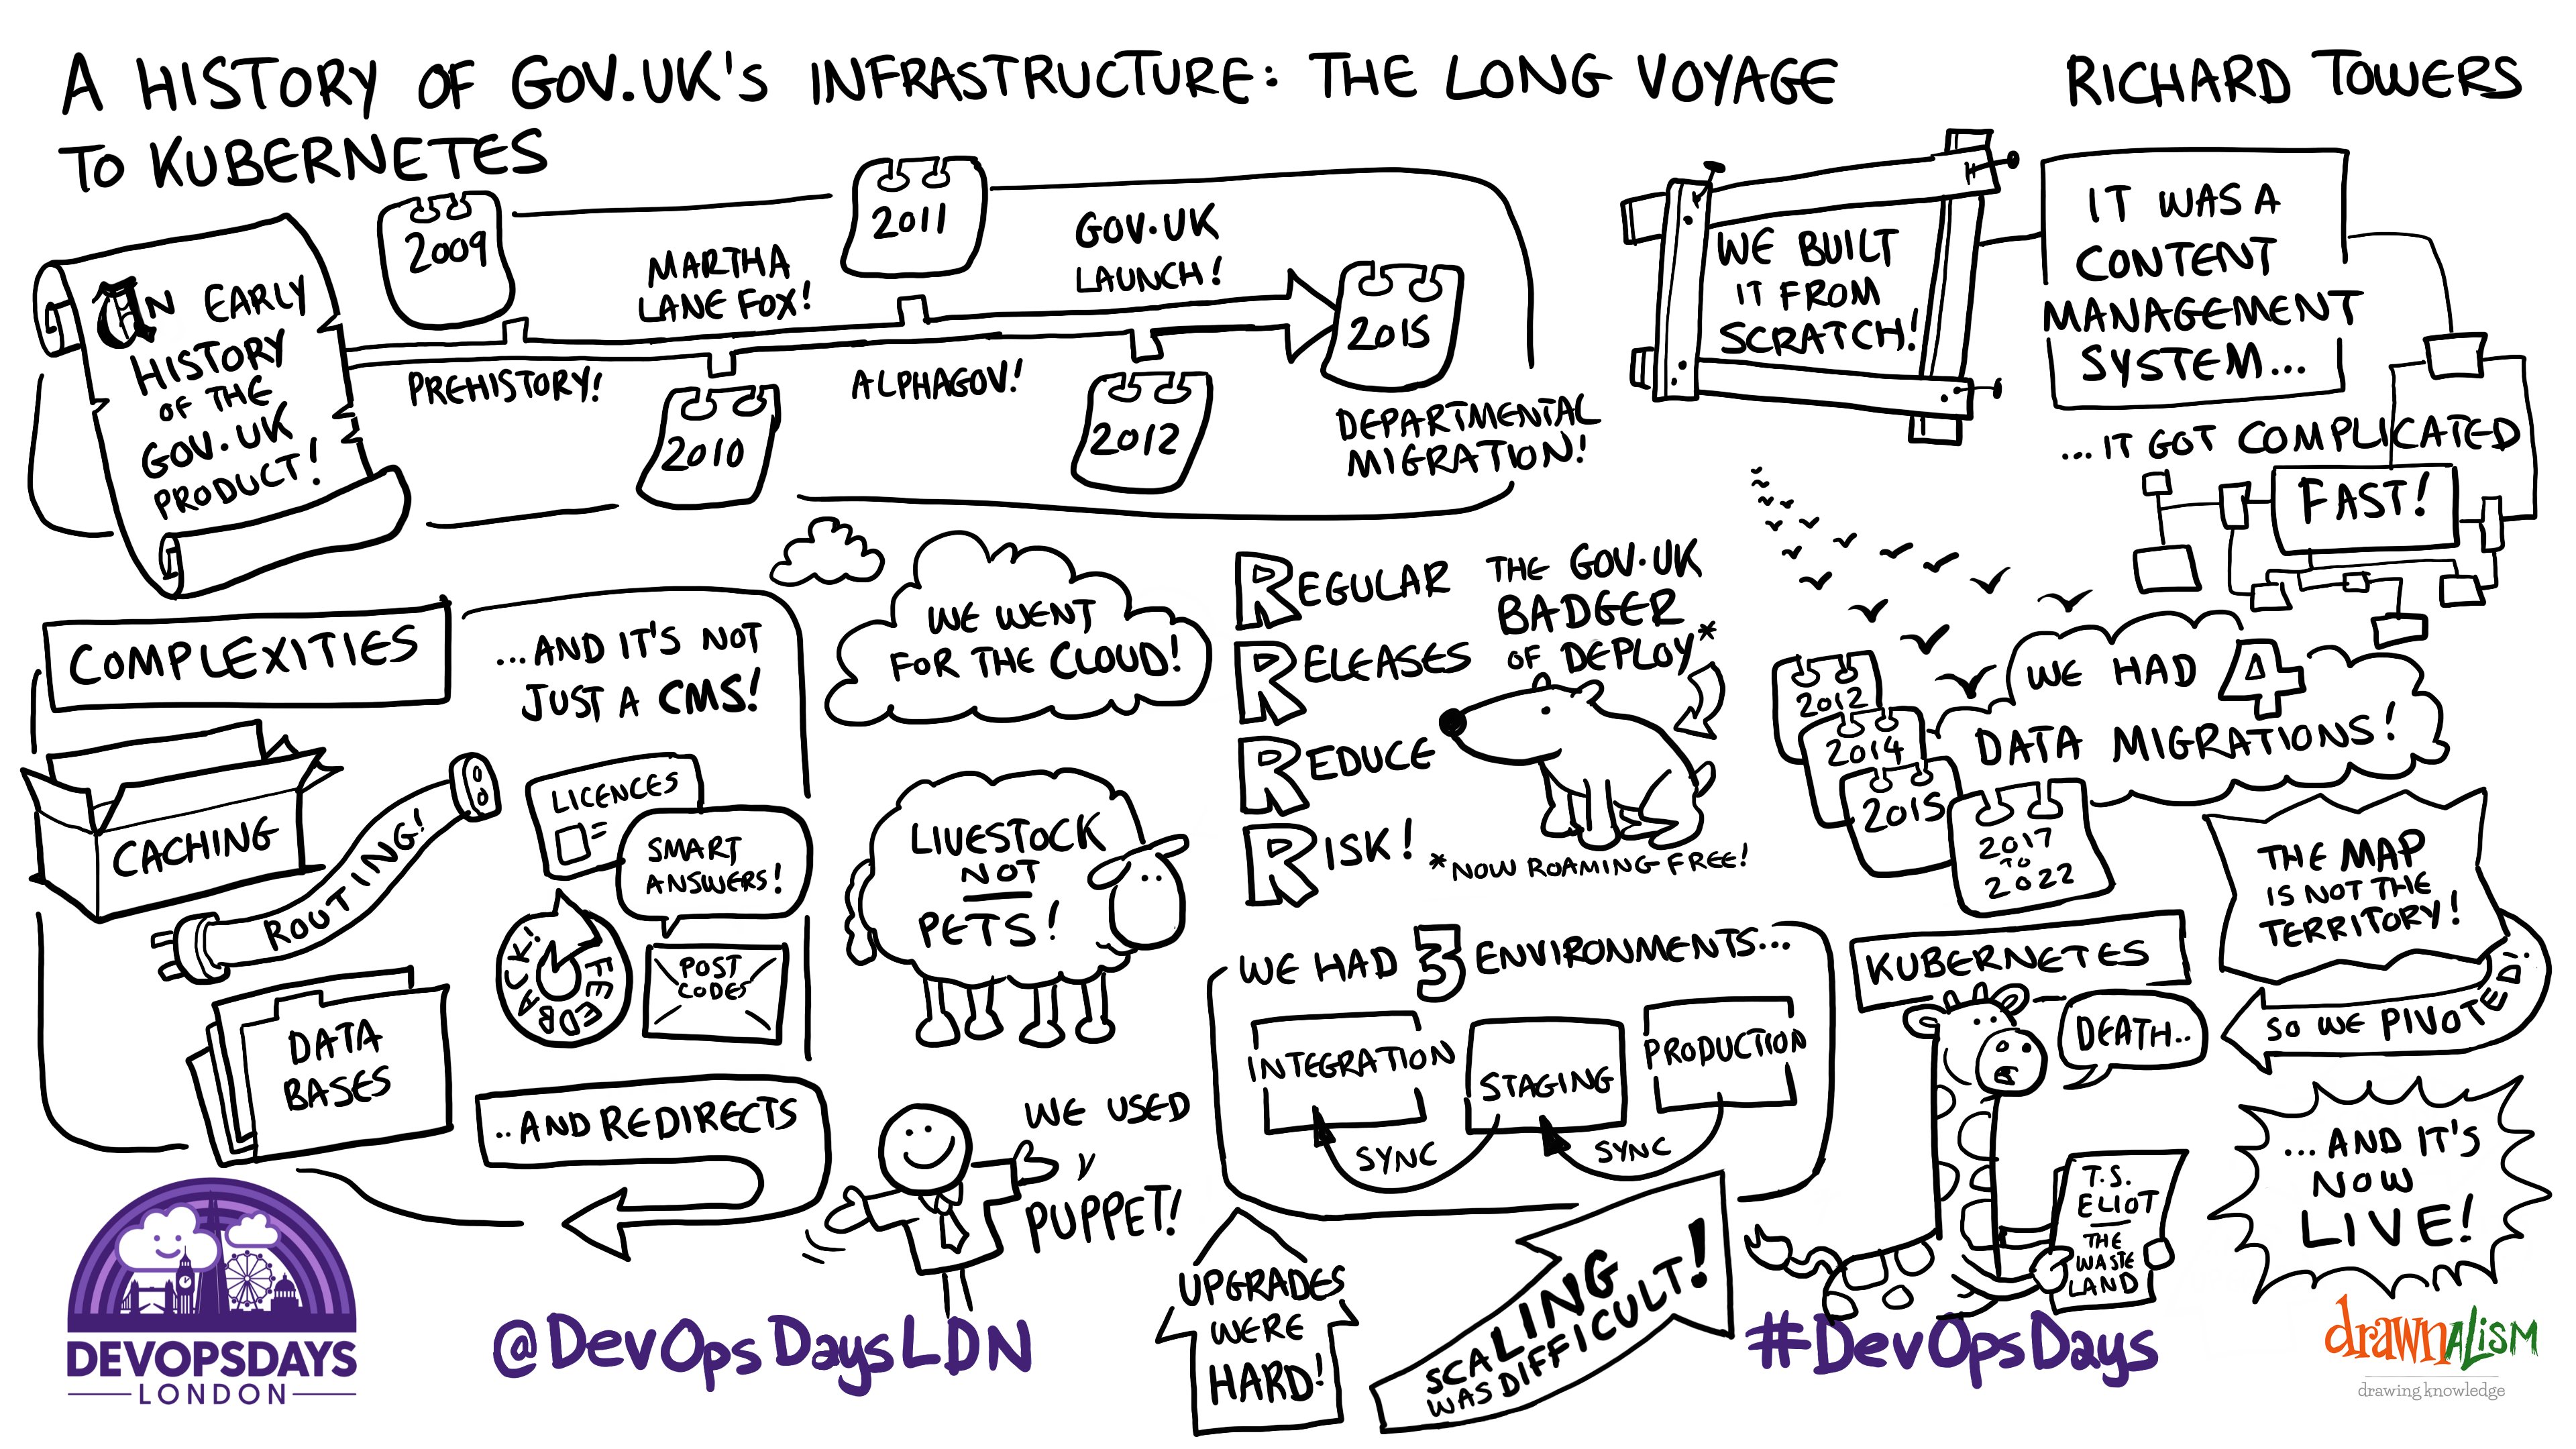 A HISTORY OF GOV.UK'S INFRASTRUCTURE: THE LONG VOYAGE
TO KUBERNETES
RICHARD TOWERS
AN EARLY
HISTORY
OF THE
GOV.UK
PRODUCT!
2009
PREHISTORY!
MARTHA
LANE FOX!
2010
2011
ALPHAGOV!
GOV.UK
LAUNCH!
2012
2015
DEPARTMENTAL
MIGRATION!
WE BUILT
IT FROM
SCRATCH!
IT WAS A
CONTENT
MANAGEMENT
SYSTEM...
...IT GOT COMPLICATED
FAST!
COMPLEXITIES
CACHING
ROUTING!
DATA
BASES
...AND IT'S NOT
JUST A CMS!
LICENCES
SMART
ANSWERS!
FEEDBACK!
POST
CODES
..AND REDIRECTS
WE WENT
FOR THE CLOUD!
LIVESTOCK
NOT
PETS!
WE USED
PUPPET!
REGULAR
RELEASES
REDUCE
RISK!
THE GOV.UK
BADGER
OF DEPLOY*
*NOW ROAMING FREE!
WE HAD 3 ENVIRONMENTS...
INTEGRATION
STAGING
PRODUCTION
SYNC
SYNC
UPGRADES
WERE
HARD!
SCALING
WAS DIFFICULT!
WE HAD 4
DATA MIGRATIONS!
2012
2014
2015
2017
TO
2022
THE MAP
IS NOT THE
TERRITORY!
SO WE PIVOTED!
KUBERNETES
DEATH..
T.S.
ELIOT
THE
WASTE
LAND
...AND IT'S
NOW
LIVE!
DEVOPSDAYS
LONDON
@DevOpsDaysLDN
#DevOpsDays
drawnalism
drawing knowledge